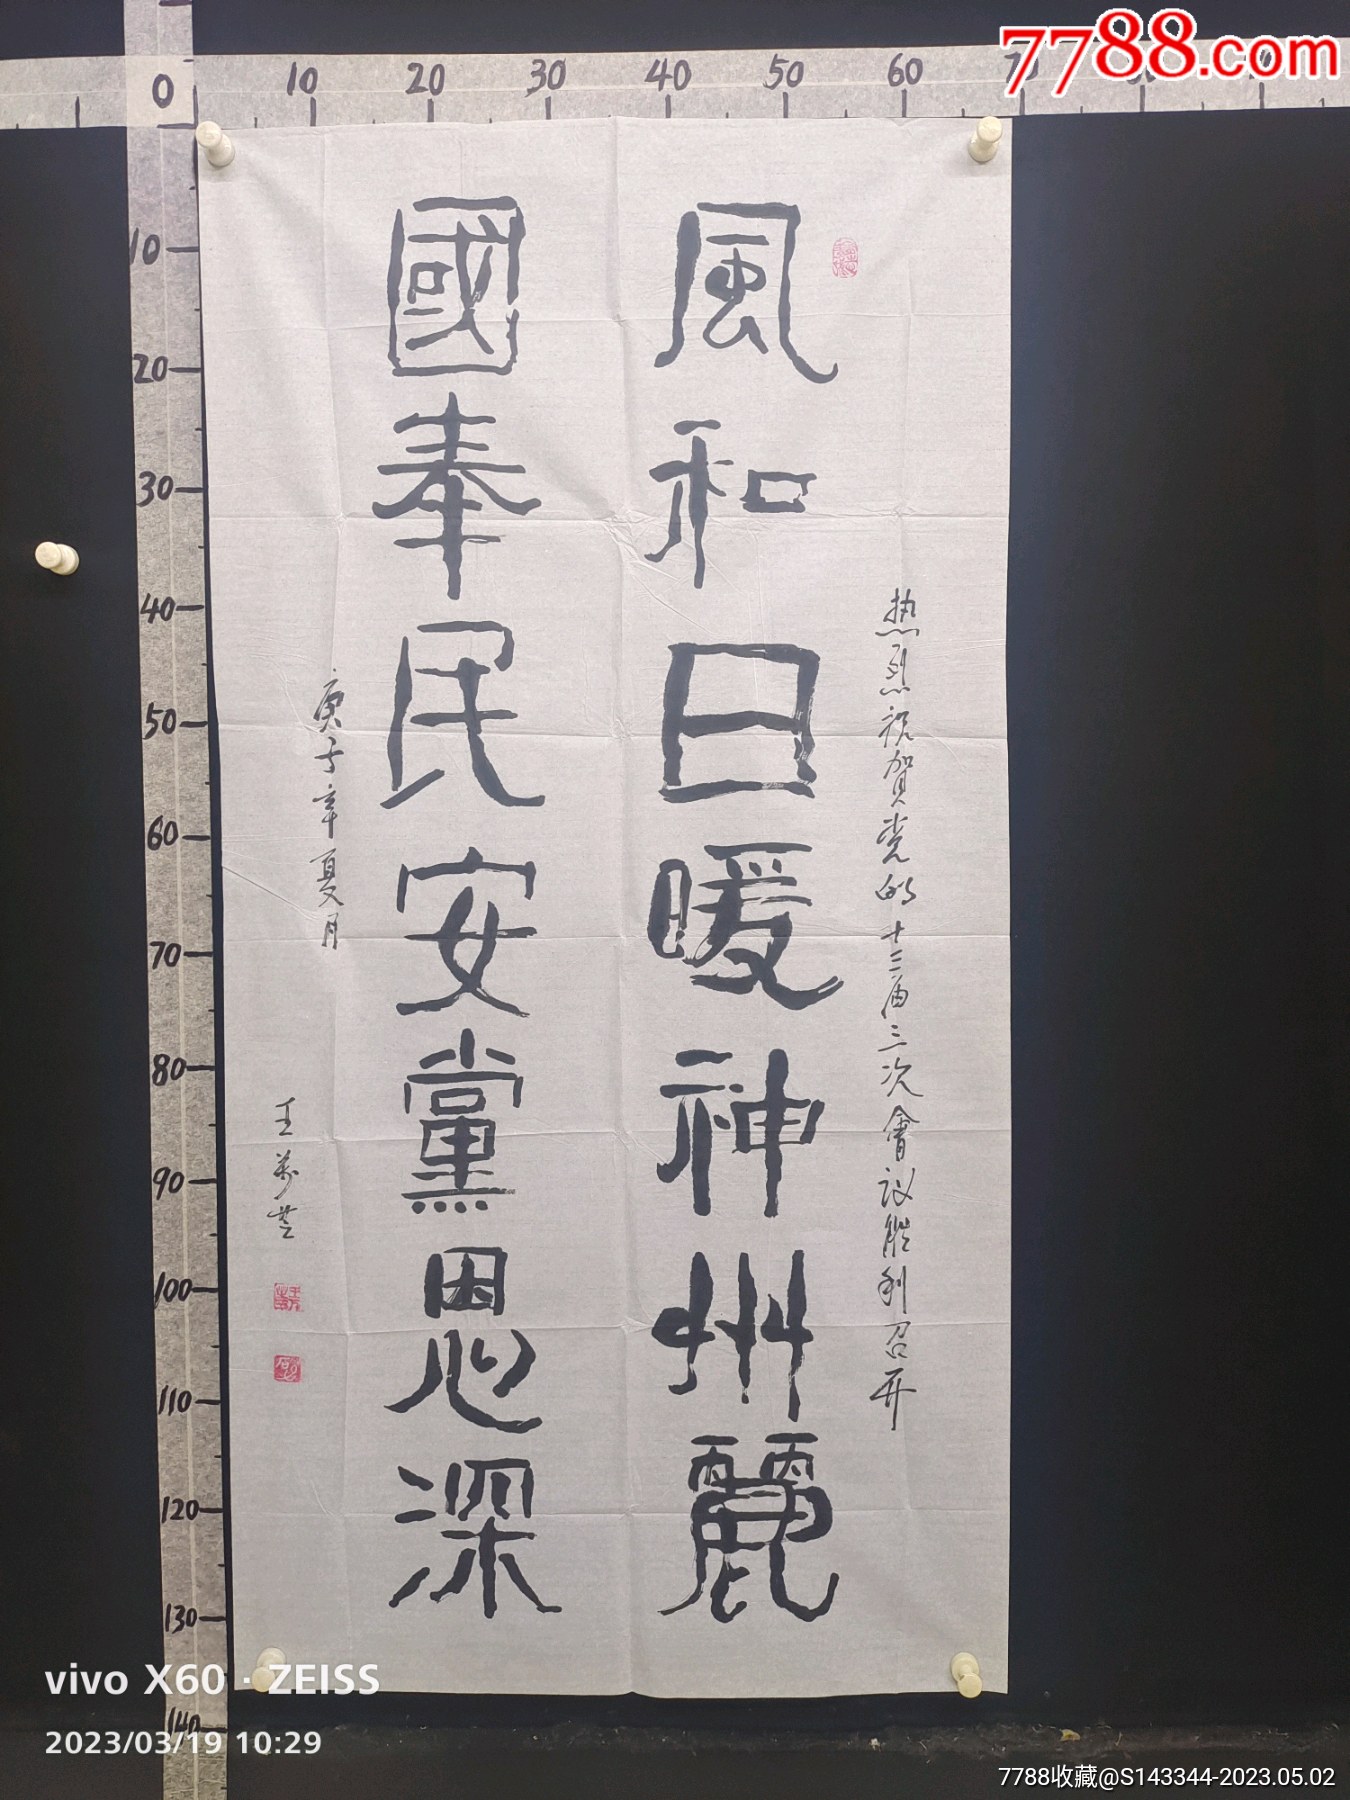 7788.com
0 10 20 30 40 50 60 70
10
20
30
40
50
60
70
80
90
100
110
120
130
140
热烈祝贺党的十三届三次會议胜利召开
風和日暖神州麗
國奉民安黨恩深
庚子年夏月
王萬
vivo X60 · ZEISS
2023/03/19 10:29
7788收藏@S143344-2023.05.02